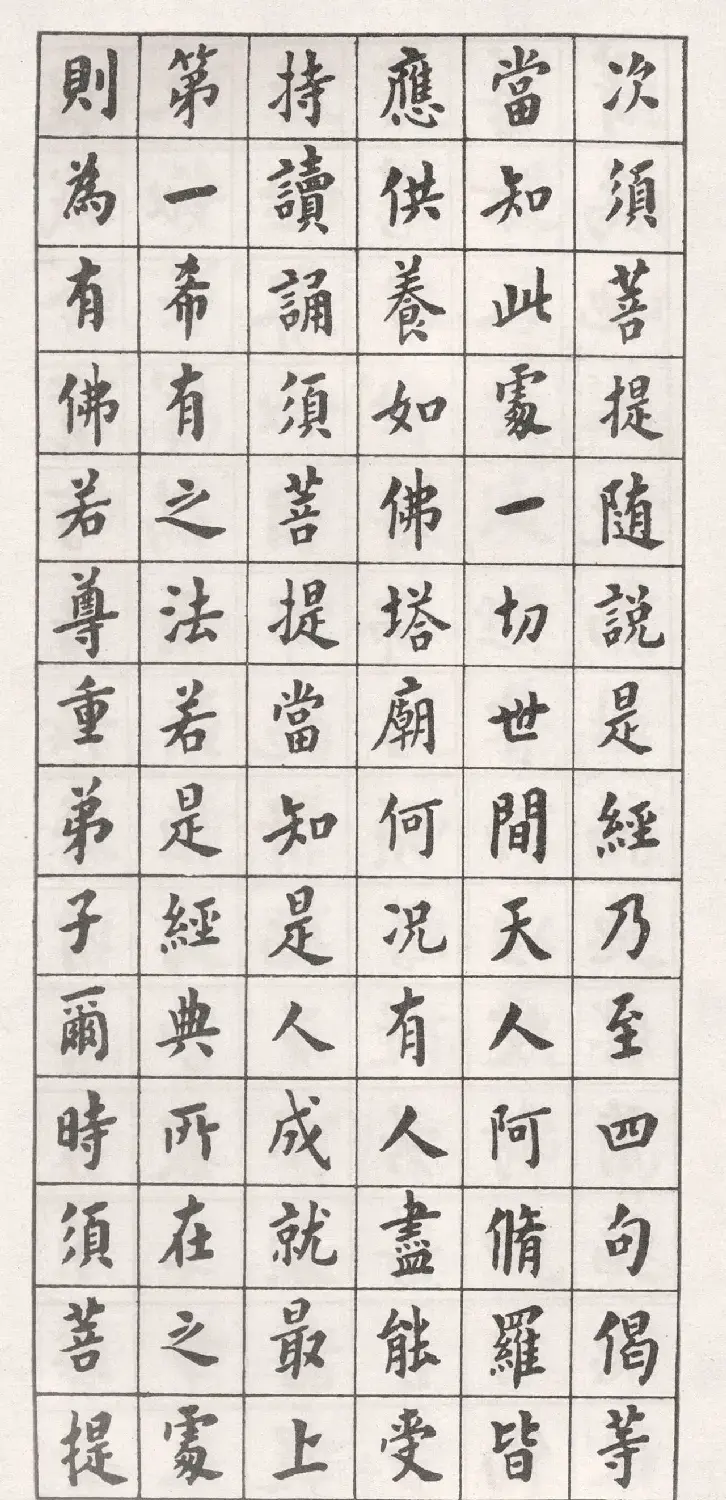 次須菩提随說是經乃至四句偈等
當知此處一切世間天人阿脩羅皆
應供養如佛塔廟何況有人盡能受
持讀誦須菩提當知是人成就最上
第一希有之法若是經典所在之處
則為有佛若尊重弟子爾時須菩提